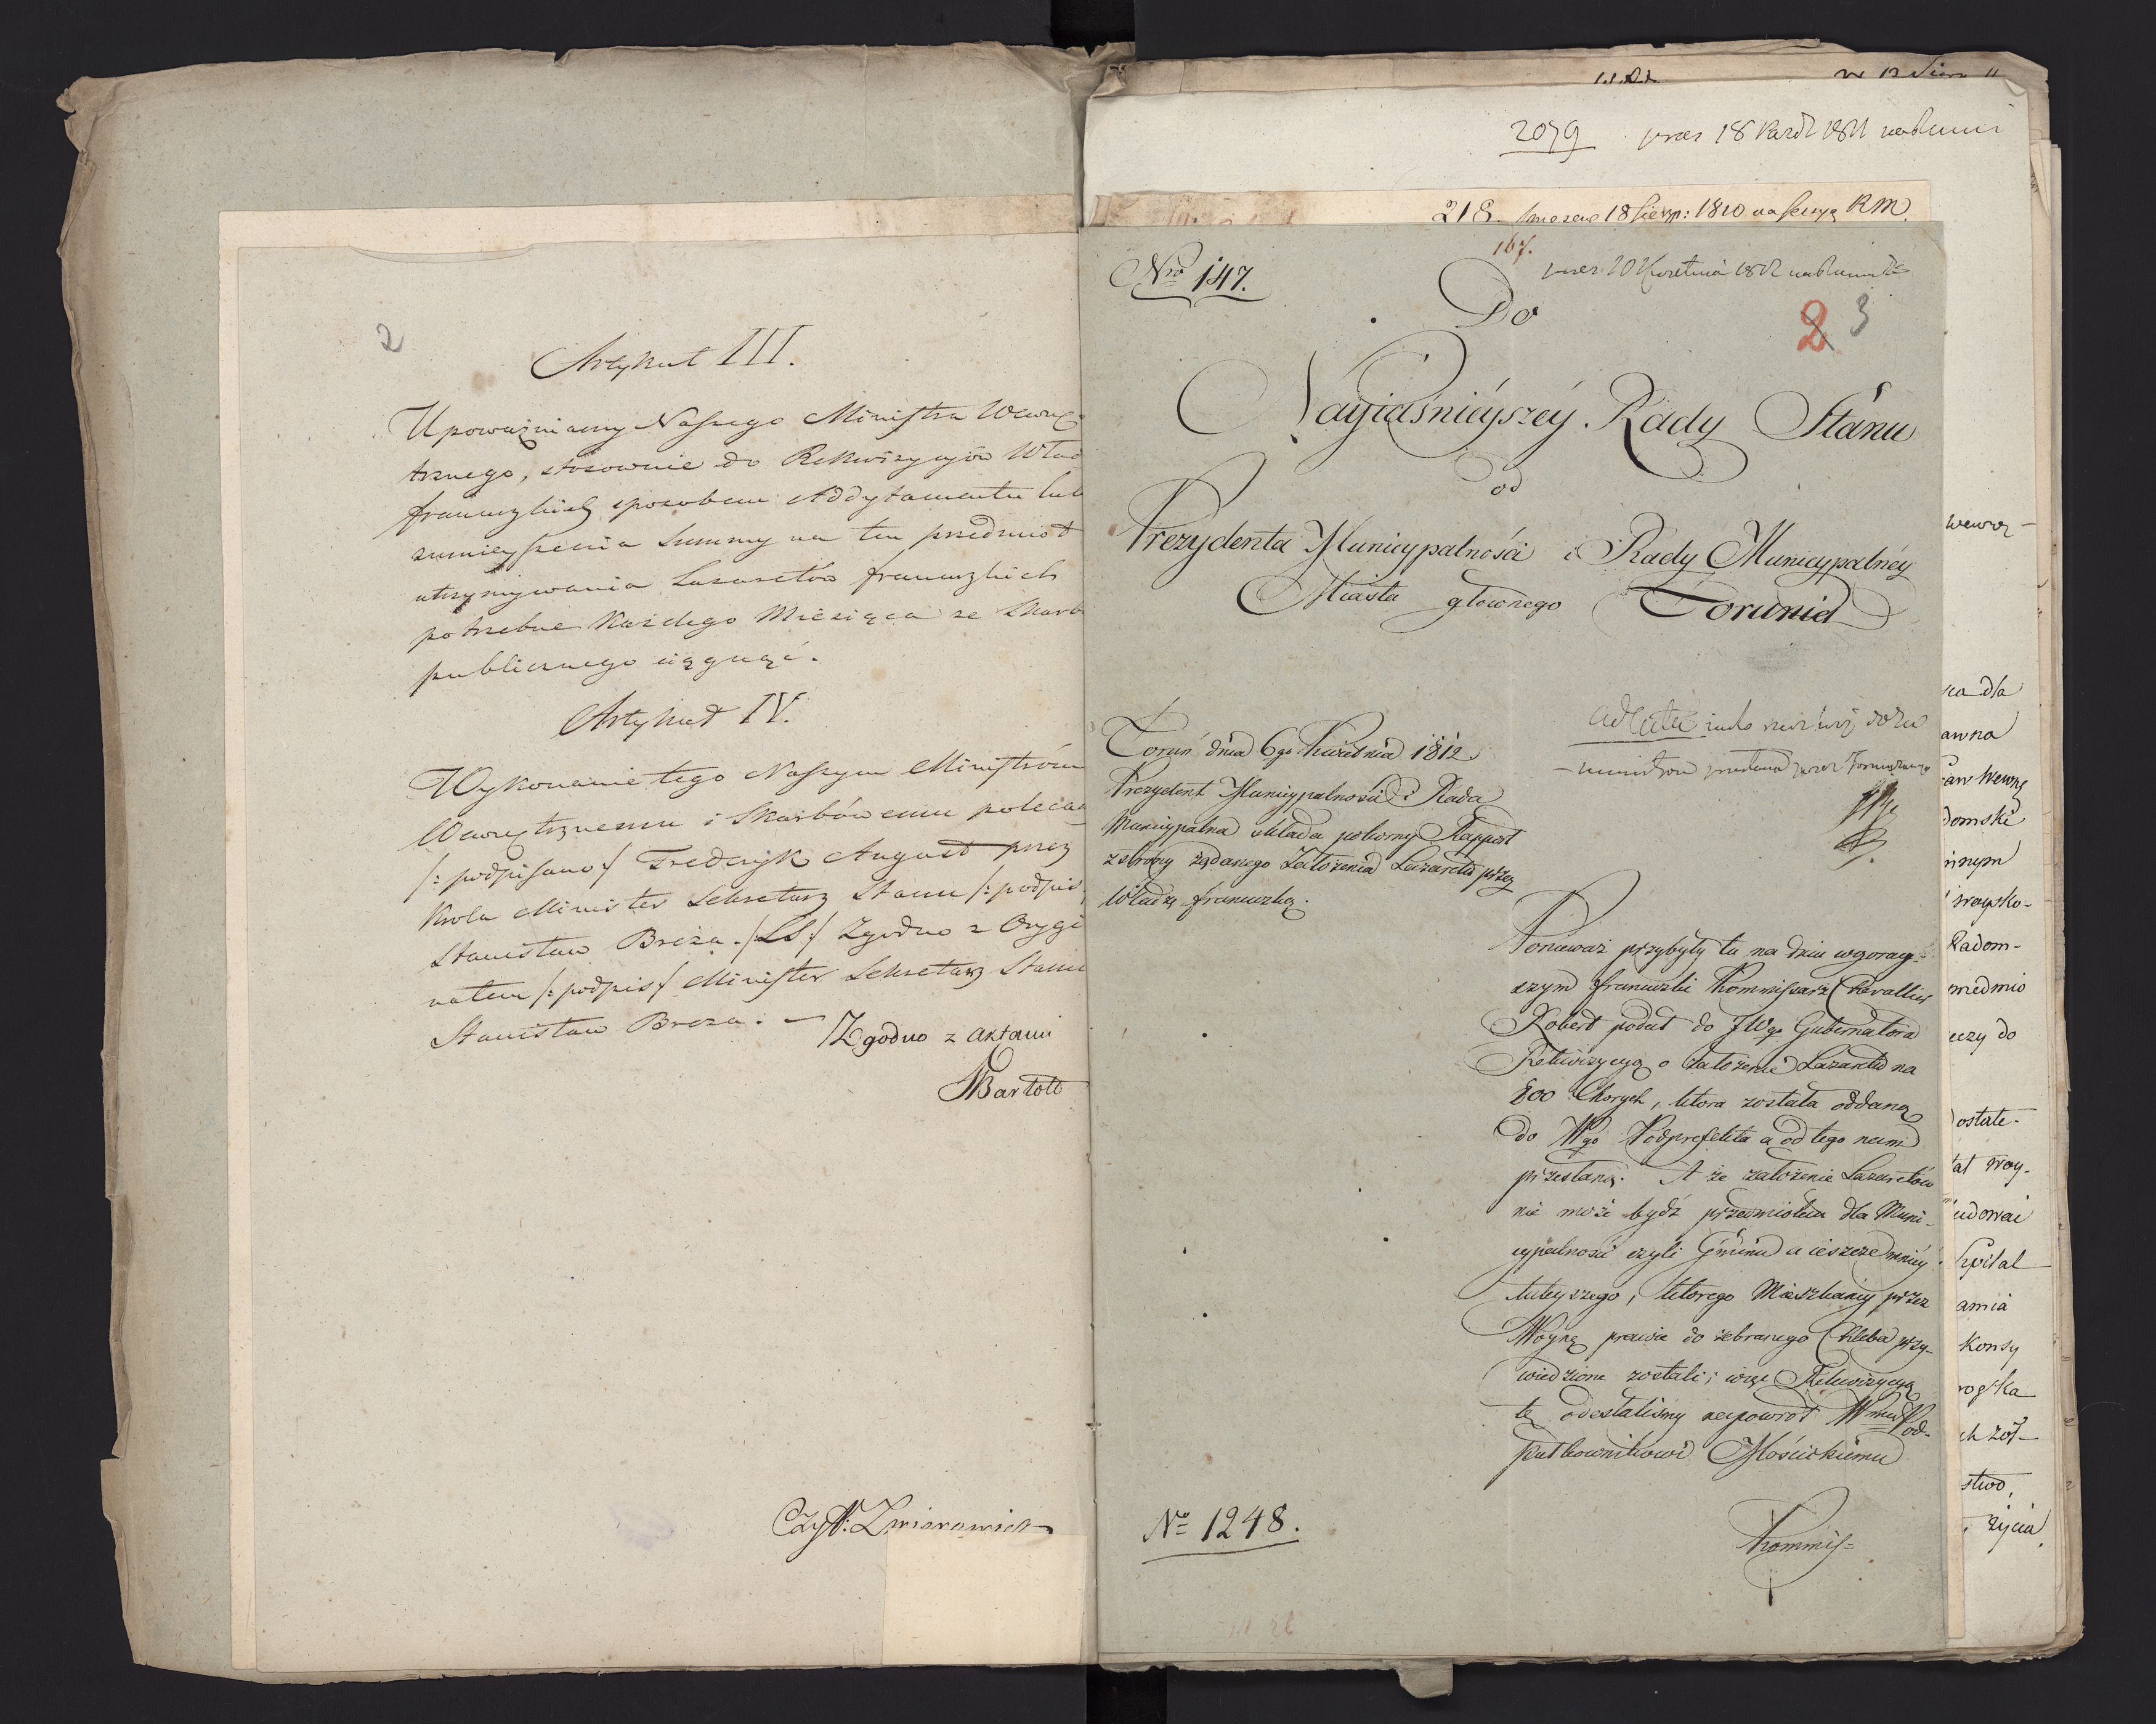 2
Artykuł III.
Upoważniamy Naszego Ministra Wewnę
trznego, stosownie do Rekwizycyów Wład
francuzkich sposobem Addytamentu lub
zmnieyszenia Summy na ten przedmiot
utrzymywania Lazaretów francuzkich
potrzebne każdego Miesiąca ze Skarb
publicznego ciągnąć.
Artykuł IV.
Wykonanie tego Naszym Ministróm
Wewnętrznemu i Skarbówemu polecam
/: podpisano :/ Frederyk August przez
Krola Minister Sekretarz Stanu /: podpis
Stanisław Breza. /: LS :/ Zgodno z Orygi
nałem /: podpis :/ Minister Sekretarz Stanu
Stanisław Breza. —
Zgodno z aktami
Bartold
2079 18 Paźdz 1811
218. 18 Sierp: 1810 na sessyą RM.
167.
Nro 147.
20 Kwietnia 1812
2 3
Do
Nayiaśnieyszey Rady Stanu
od
Prezydenta Municypalności i Rady Municypalney
Miasta głownego Torunia
Toruń dnia 6go Kwietnia 1812
Prezydent Municypalności i Rada
Municypalna składa pokorny Rapport
z strony żądanego Założenia Lazaretu przez
Władzę francuzką.
Ponieważ przybyły tu na dniu wczoray-
szym francuzki Kommissarz Chevallier
Robert podał do JWgo Gubernatora
Rekwizycyą o założenie Lazaretu na
800 Chorych, ktora została oddaną
do Wgo Podprefekta a od tego nam
przesłaną. A że założenie Lazaretów
nie może bydź przedmiotem dla Muni-
cypalności czyli Gminu a ieszcze mniey
tuteyszego, ktorego Mieszkańcy przez
Woynę prawie do żebranego Chleba przy-
wiedzione zostali; więc Rekwizycyą
tę odesłaliśmy napowrót Wmu Pod-
pułkownikowi Mościckiemu
Kommis-
No 1248.
wewnę-
dla
awna
Wewnę
domski
innym
woysko-
Radom-
do
ostate-
woy-
Szpital
konsy
stwo,
życia,